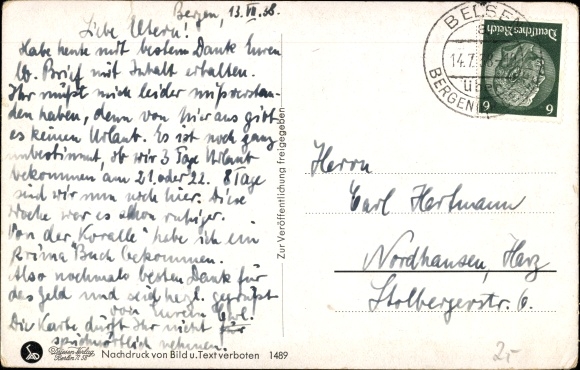 Bergen, 13.VII.38.
Liebe Eltern!
Habe heute mit bestem Dank Euren
lb. Brief mit Inhalt erhalten.
Ihr müßt mich leider mißverstan-
den haben, denn von hier aus gibt
es keinen Urlaub. Es ist noch ganz
unbestimmt, ob wir 3 Tage Urlaub
bekommen am 21. oder 22. 8 Tage
sind wir nun noch hier. Diese
Woche war es schon ruhiger.
Von der "Koralle" habe ich ein
Prima Buch bekommen.
Also nochmals besten Dank für
das Geld und seid herzl. gegrüßt
von Eurem
Die Karte dürft Ihr nicht für
sprichwörtlich nehmen!
Zur Veröffentlichung freigegeben
Nachdruck von Bild u. Text verboten 1489
BELSEN
14.7.38
über
BERGEN
Deutsches Reich
6 6
Herrn
Carl Hartmann
Nordhausen, Harz
Stolbergerstr. 6.
2,-